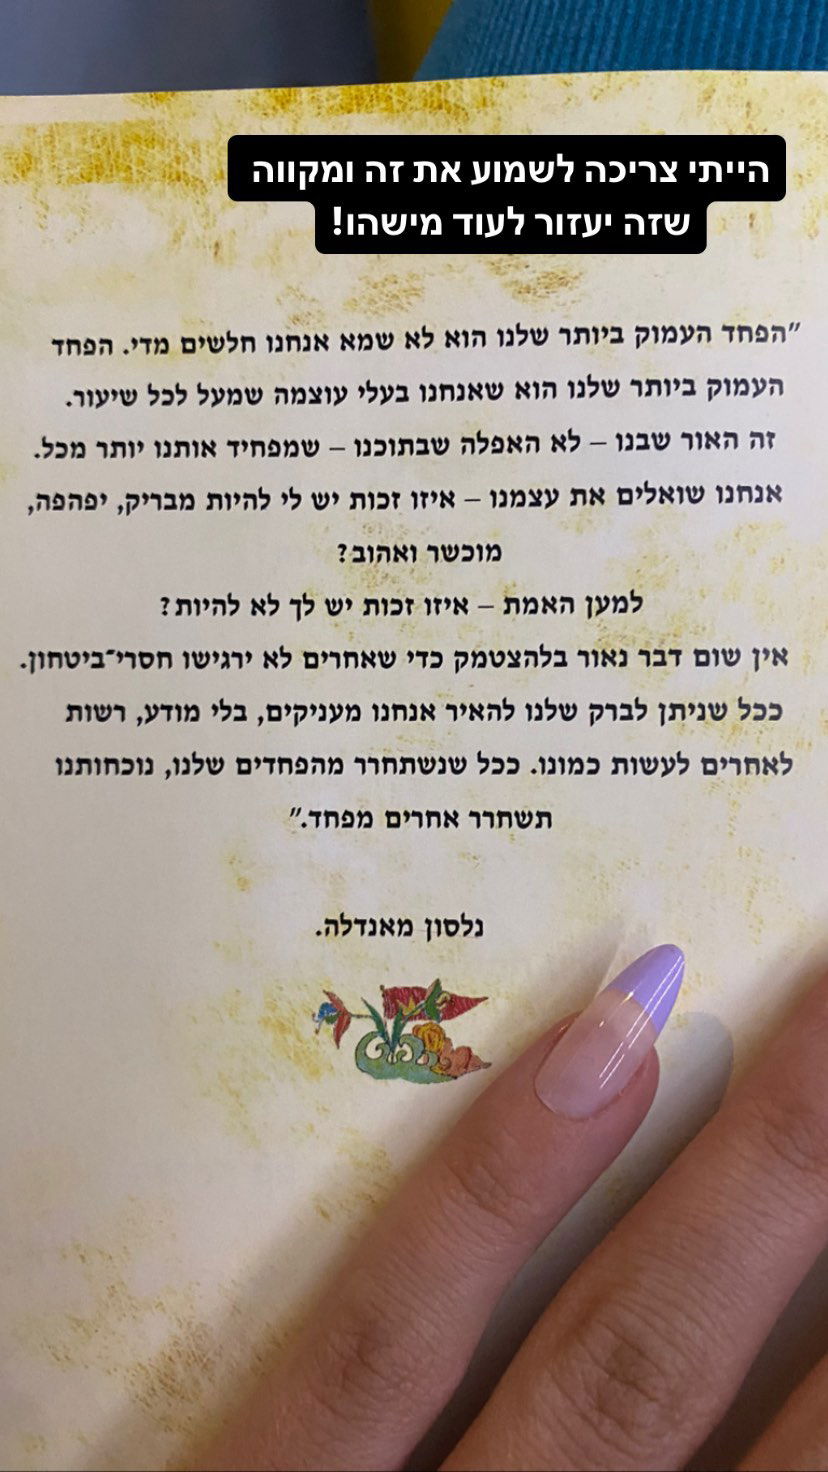 הייתי צריכה לשמוע את זה ומקווה
שזה יעזור לעוד מישהו!
"הפחד העמוק ביותר שלנו הוא לא שמא אנחנו חלשים מדי. הפחד
העמוק ביותר שלנו הוא שאנחנו בעלי עוצמה שמעל לכל שיעור.
זה האור שבנו – לא האפלה שבתוכנו – שמפחיד אותנו יותר מכל.
אנחנו שואלים את עצמנו – איזו זכות יש לי להיות מבריק, יפהפה,
מוכשר ואהוב?
למען האמת – איזו זכות יש לך לא להיות?
אין שום דבר נאור בלהצטמק כדי שאחרים לא ירגישו חסרי־ביטחון.
ככל שניתן לברק שלנו להאיר אנחנו מעניקים, בלי מודע, רשות
לאחרים לעשות כמונו. ככל שנשתחרר מהפחדים שלנו, נוכחותנו
תשחרר אחרים מפחד."
נלסון מאנדלה.